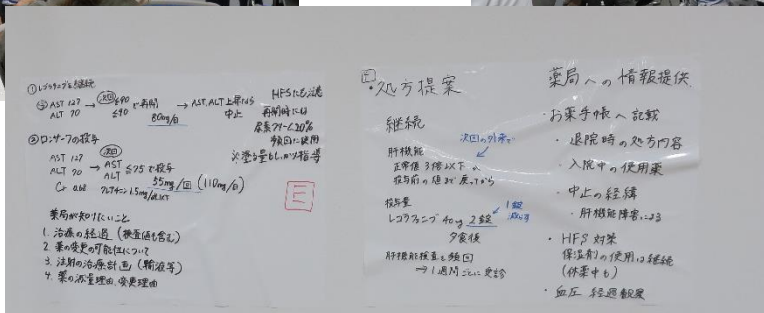 ①レゴラフェニブを継続
AST 127 → 次回 ≦90で再開 → AST, ALT 上昇なら
ALT 70 ≦90 中止
80mg/日
HFSにも注意
再開時には
尿素クリーム20%
頻回に使用
②ロンサーフの投与
※塗る量もしっかり指導
AST 127 → 次回 AST
ALT 70 ALT ≦75で投与
Cr 0.68 クレアチニン 1.5mg/dL以下
55mg/回 (110mg/日)
E
薬局が知りたいこと
1. 治療の経過 (検査値も含む)
2. 薬の変更の可能性について
3. 注射の治療計画 (輸液等)
4. 薬の減量理由、変更理由
E
・処方提案
継続
次回の外来で
肝機能
正常値3倍以下 or
投与前の値まで戻ってから
投与量
レゴラフェニブ 40mg 2錠 1錠
夕食後
肝機能検査も頻回
→1週間ごとに受診
薬局への情報提供
・お薬手帳へ記載
・退院時の処方内容
・入院中の使用薬
・中止の経緯
・肝機能障害による
・HFS対策
保湿剤の使用は継続
(休薬中も)
・血圧 経過観察